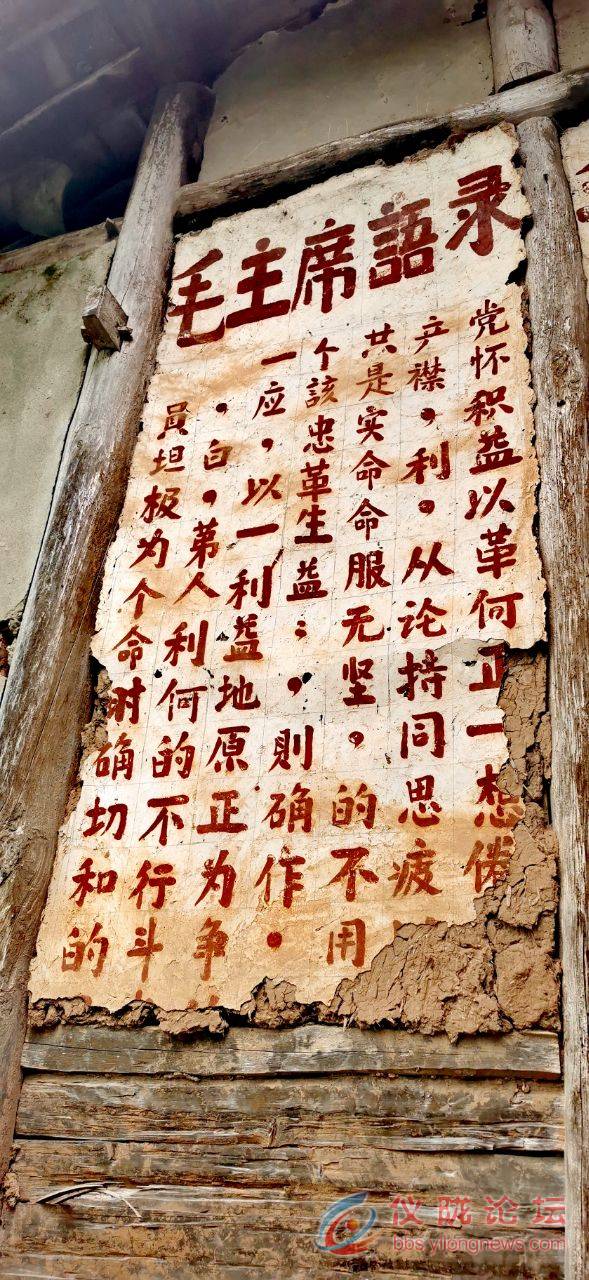 毛主席語录
一个共产党
員,应該是襟怀
坦白,忠实,积
极,以革命利益
为第一生命,以
个人利益服从革
命利益;无论何
时何地,坚持正
确的原則,同一
切不正确的思想
和行为作不疲倦
的斗争。用
仪陇论坛
bbs.yilongnews.com